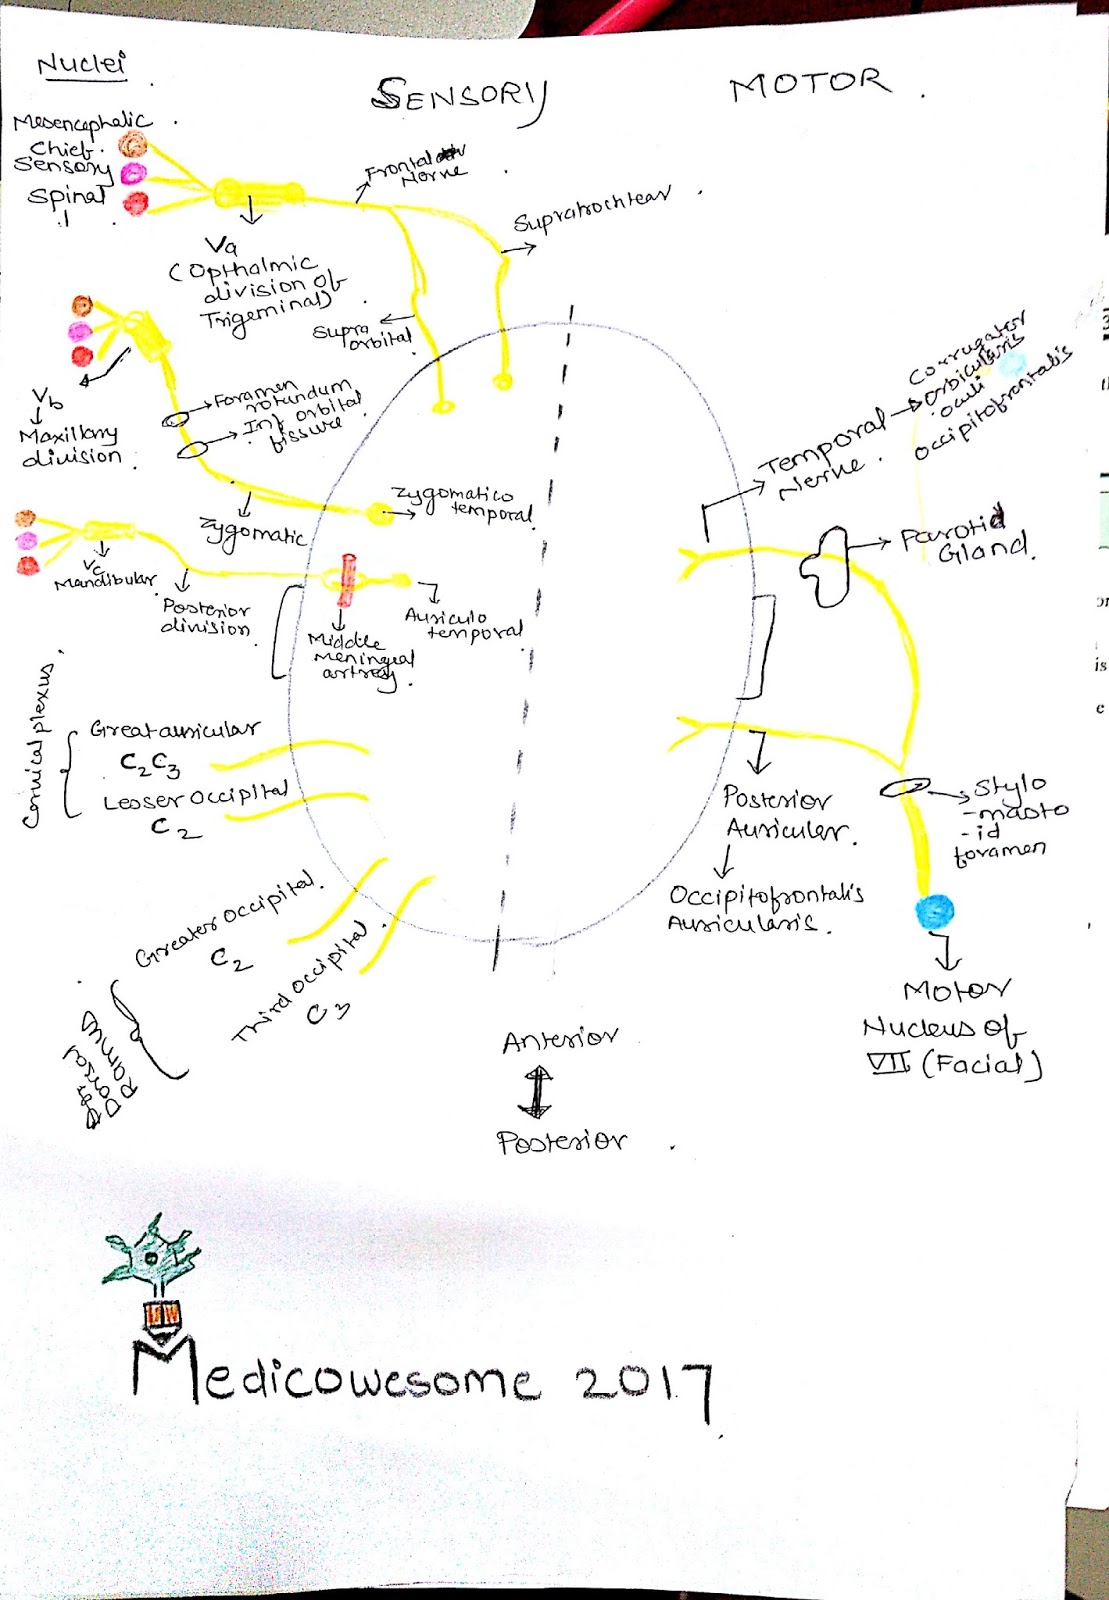 Nuclei
SENSORY
MOTOR
Mesencephalic
Chief
Sensory
Spinal
Frontal
Nerve
Supratrochlear
Va
(Opthalmic
division of
Trigeminal)
Supra
orbital
Vb
Maxillary
division
Foramen
rotundum
Inf orbital
fissure
Zygomatic
Zygomatico
temporal
Vc
Mandibular
Posterior
division
Middle
Meningeal
artrey
Auriculo
temporal
Cervical plexus
Great auricular
C2C3
Lesser Occipital
C2
Greater Occipital
C2
Third Occipital
C3
Dorsal
Ramus
Temporal
Nerve
Corrugator
Orbicularis
oculi
Occipitofrontalis
Parotid
Gland
Posterior
Auricular
Occipitofrontalis
Auricularis
Stylo
-masto
-id
foramen
Motor
Nucleus of
VII (Facial)
Anterior
Posterior
Medicowesome 2017
is